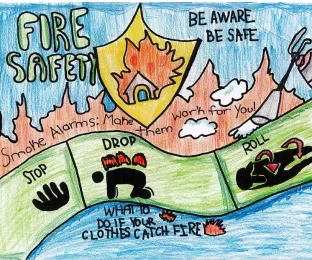 FIRE
SAFETY
BE AWARE
BE SAFE
Smoke Alarms: Make Them Work for You!
STOP
DROP
ROLL
WHAT TO
DO IF YOUR
CLOTHES CATCH FIRE